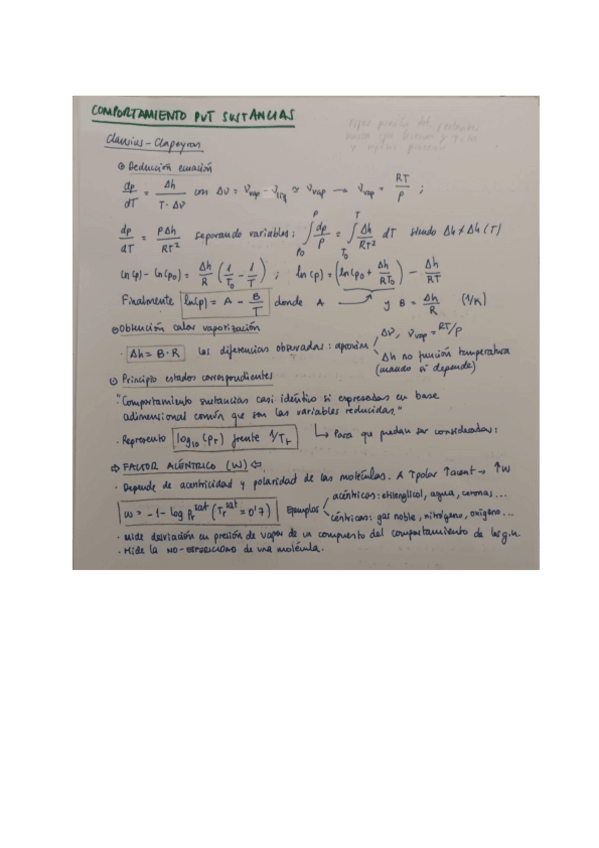 COMPORTAMIENTO PVT SUSTANCIAS
Clausius-Clapeyron
Deducción ecuación
dp/dT = Δh/(T·Δv) con Δv = Vvap - Vliq ≃ Vvap → Vvap = RT/P ;
dp/dT = PΔh/RT² separando variables: ∫_{P0}^{P} dp/P = ∫_{T0}^{T} Δh/RT² dT siendo Δh ≠ Δh(T)
ln(p) - ln(p0) = Δh/R (1/T0 - 1/T) ; ln(p) = (ln(p0 + Δh/RT0) - Δh/RT
Finalmente ln(p) = A - B/T donde A y B = Δh/R (1/K)
Obtención calor vaporización
· Δh = B·R Las diferencias observadas: aproxim
Δv, Vvap = RT/P
Δh no función temperatura
(cuando sí depende)
Principio estados correspondientes
"Comportamiento sustancias casi idéntico si expresadas en base
adimensional común que son las variables reducidas."
· Represento log10(Pr) frente 1/Tr ↳ Para que puedan ser consideradas:
⇒ FACTOR ACÉNTRICO (W) ⇐
· Depende de acentricidad y polaridad de las moléculas. A ↑polar ↑acent → ↑W
w = -1 - log Pr^sat (Tr^sat = 0'7) Ejemplos
acéntricos: etilenglicol, agua, cetonas...
céntricos: gas noble, nitrógeno, oxígeno...
· Mide desviación en presión de vapor de un compuesto del comportamiento de los g.n
· Mide la NO-esfericidad de una molécula.